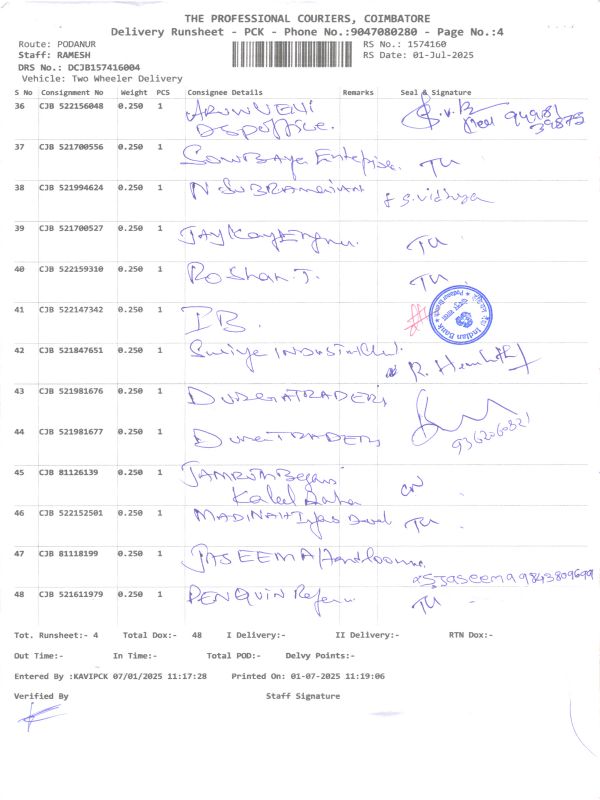 THE PROFESSIONAL COURIERS, COIMBATORE
Delivery Runsheet - PCK - Phone No.:9047080280 - Page No.:4
Route: PODANUR RS No.: 1574160
Staff: RAMESH RS Date: 01-Jul-2025
DRS No.: DCJB157416004
Vehicle: Two Wheeler Delivery
S No Consignment No Weight PCS Consignee Details Remarks Seal & Signature
36 CJB 522156048 0.250 1
37 CJB 521700556 0.250 1 TU
38 CJB 521994624 0.250 1 N SUBRAMANIAN S. Vidhya
39 CJB 521700527 0.250 1 JAY Kay Engnu. TU
40 CJB 522159310 0.250 1 ROShan.J. TU
41 CJB 522147342 0.250 1 IB. Indian Bank
42 CJB 521847651 0.250 1 R.
43 CJB 521981676 0.250 1 DURGA TRADERS
9362060321
44 CJB 521981677 0.250 1 TRADERS
45 CJB 81126139 0.250 1
46 CJB 522152501 0.250 1 MADINAH TU
47 CJB 81118199 0.250 1 JASEEMA Handlooms
S Jaseema 9843809699
48 CJB 521611979 0.250 1 PENQUIN TU
Tot. Runsheet:- 4 Total Dox:- 48 I Delivery:- II Delivery:- RTN Dox:-
Out Time:- In Time:- Total POD:- Delvy Points:-
Entered By :KAVIPCK 07/01/2025 11:17:28 Printed On: 01-07-2025 11:19:06
Verified By Staff Signature